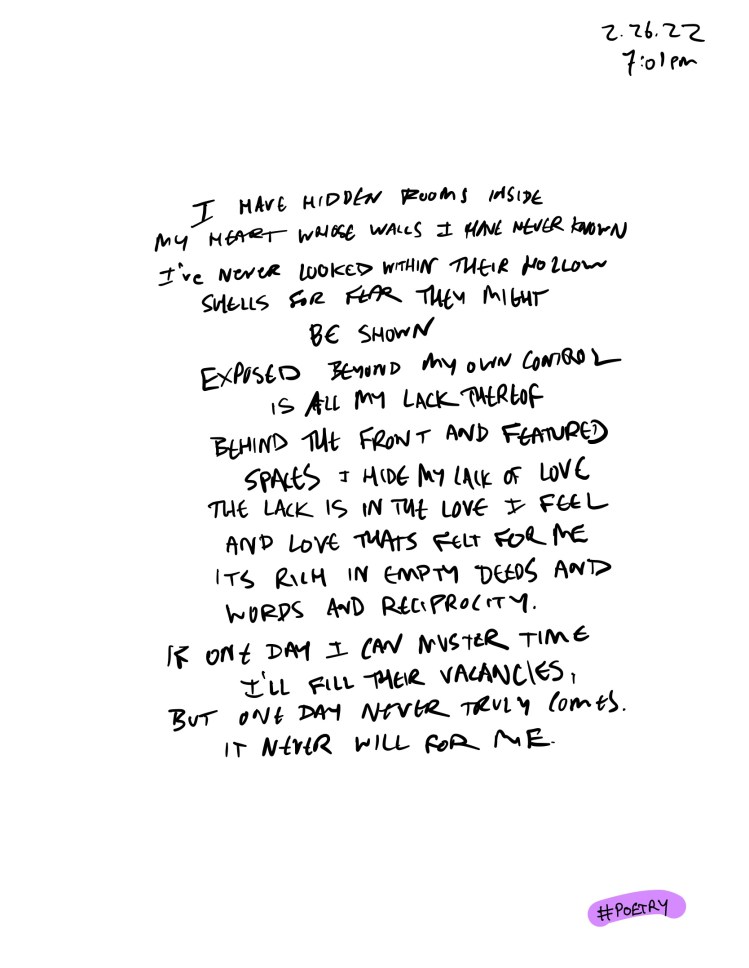 2.26.22
7:01pm
I HAVE HIDDEN ROOMS INSIDE
MY HEART WHOSE WALLS I HAVE NEVER KNOWN
I've NEVER LOOKED WITHIN THEIR HOLLOW
SHELLS FOR FEAR THEY MIGHT
BE SHOWN
EXPOSED BEYOND MY OWN CONTROL
IS ALL MY LACK THEREOF
BEHIND THE FRONT AND FEATURED
SPACES I HIDE MY LACK OF LOVE
THE LACK IS IN THE LOVE I FEEL
AND LOVE THATS FELT FOR ME
ITS RICH IN EMPTY DEEDS AND
WORDS AND RECIPROCITY.
IF ONE DAY I CAN MUSTER TIME
I'LL FILL THEIR VACANCIES,
BUT ONE DAY NEVER TRULY COMES.
IT NEVER WILL FOR ME.
#POETRY